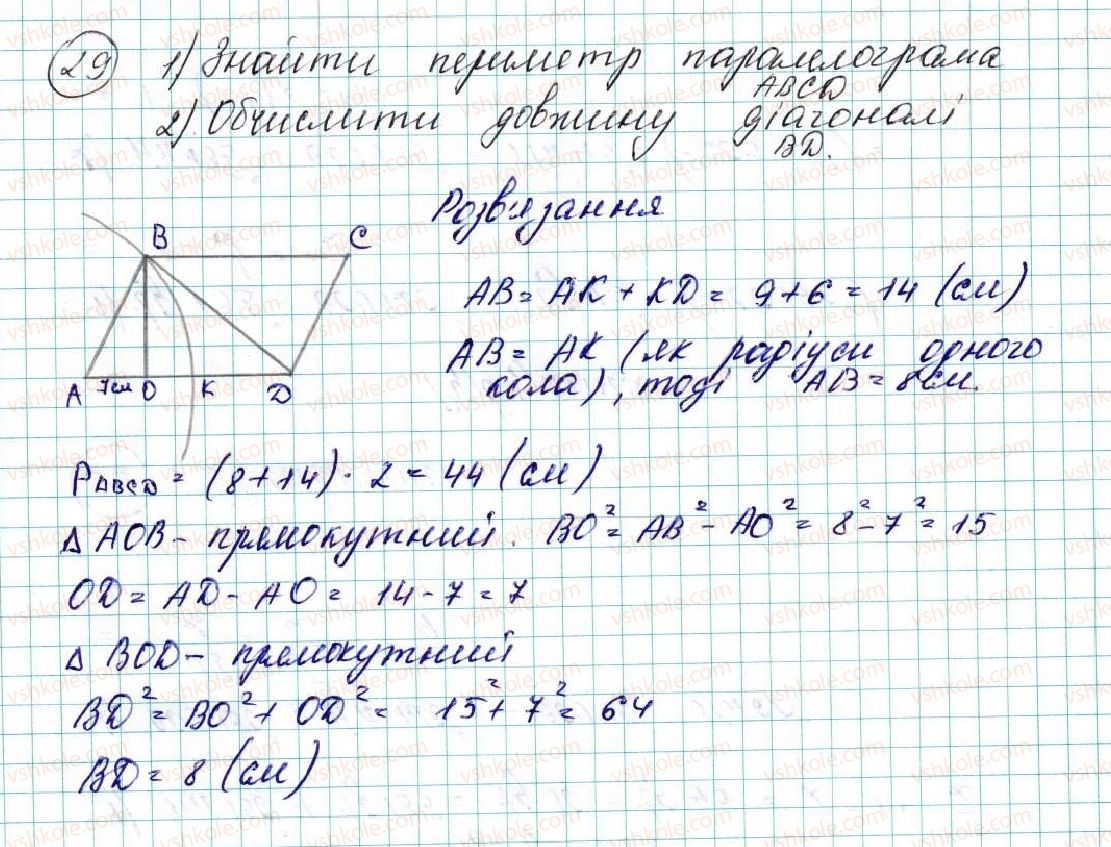 29 1) Знайти периметр паралелограма
ABCD
2) Обчислити довжину діагоналі
BD.
Розв'язання
B C
A 7см O K D
AB = AK + KD = 9 + 6 = 14 (см)
AB = AK (як радіуси одного
кола), тоді AB = 8 см.
P ABCD = (8 + 14) · 2 = 44 (см)
Δ AOB - прямокутний. BO² = AB² - AO² = 8² - 7² = 15
OD = AD - AO = 14 - 7 = 7
Δ BOD - прямокутний
BD² = BO² + OD² = 15² + 7² = 64
BD = 8 (см)